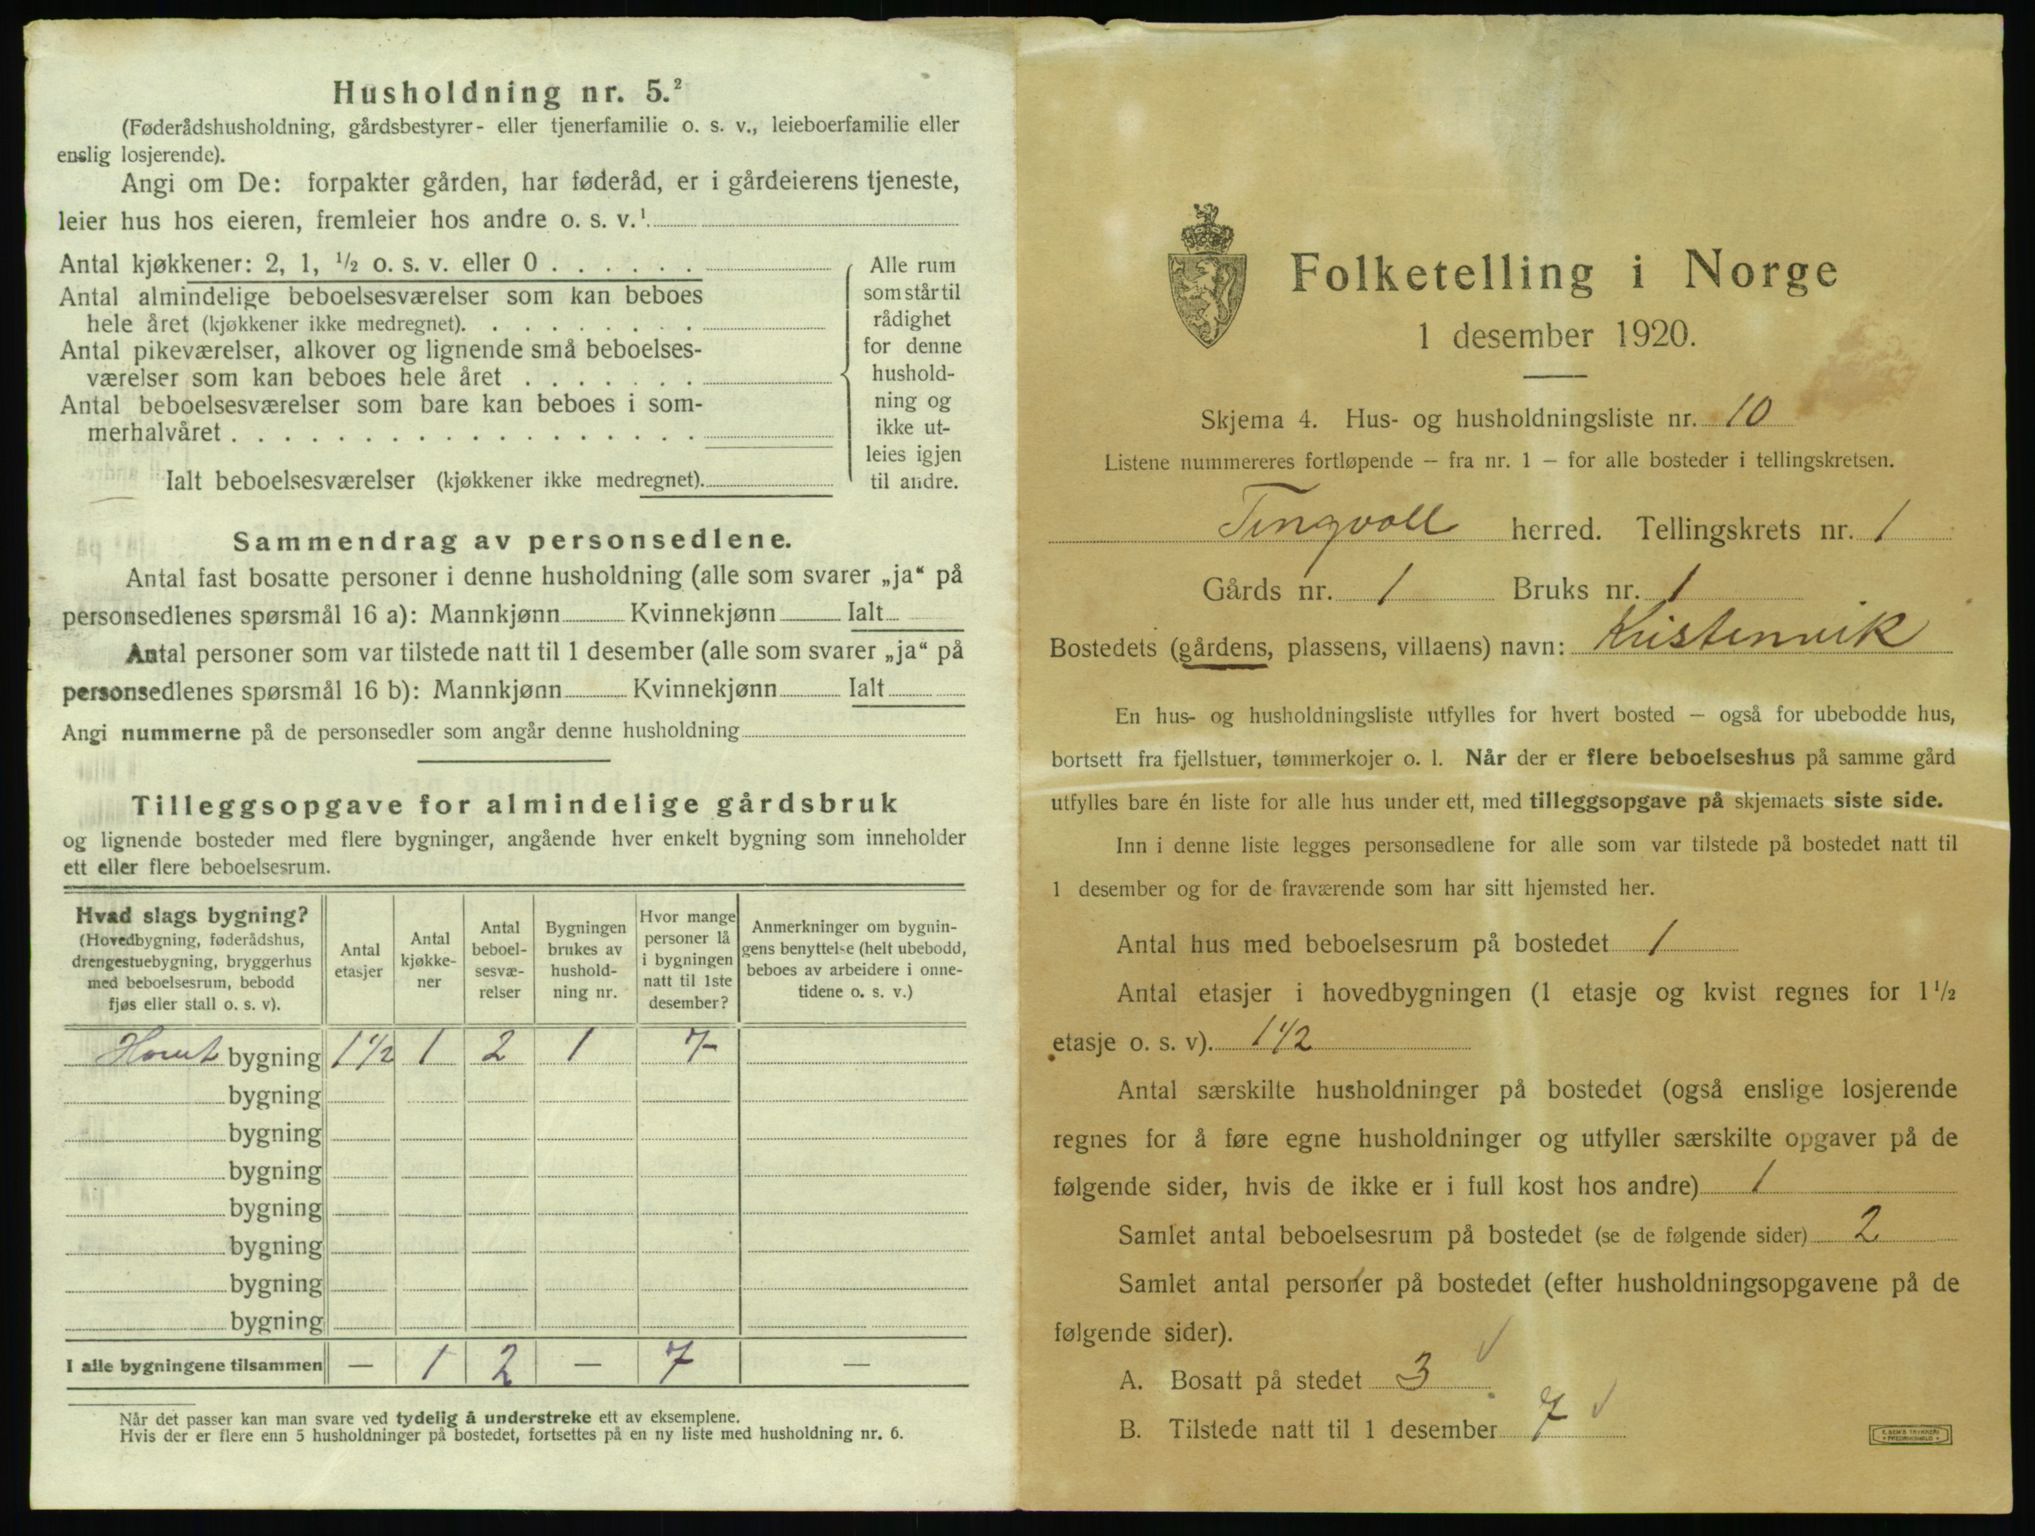 Husholdning nr. 5.²
(Føderådshusholdning, gårdsbestyrer- eller tjenerfamilie o. s. v., leieboerfamilie eller
enslig losjerende).
Angi om De: forpakter gården, har føderåd, er i gårdeierens tjeneste,
leier hus hos eieren, fremleier hos andre o. s. v.¹
Antal kjøkkener: 2, 1, ½ o. s. v. eller 0 . . . . . .
Antal almindelige beboelsesværelser som kan beboes
hele året (kjøkkener ikke medregnet). . . . . . . . .
Antal pikeværelser, alkover og lignende små beboelses-
værelser som kan beboes hele året . . . . . . .
Antal beboelsesværelser som bare kan beboes i som-
merhalvåret . . . . . . . . . . . . . . . . . .
Ialt beboelsesværelser (kjøkkener ikke medregnet).
Alle rum
som står til
rådighet
for denne
hushold-
ning og
ikke ut-
leies igjen
til andre.
Sammendrag av personsedlene.
Antal fast bosatte personer i denne husholdning (alle som svarer „ja“ på
personsedlenes spørsmål 16 a): Mannkjønn Kvinnekjønn Ialt
Antal personer som var tilstede natt til 1 desember (alle som svarer „ja“ på
personsedlenes spørsmål 16 b): Mannkjønn Kvinnekjønn Ialt
Angi nummerne på de personsedler som angår denne husholdning
Tilleggsopgave for almindelige gårdsbruk
og lignende bosteder med flere bygninger, angående hver enkelt bygning som inneholder
ett eller flere beboelsesrum.
Hvad slags bygning?
(Hovedbygning, føderådshus,
drengestuebygning, bryggerhus
med beboelsesrum, bebodd
fjøs eller stall o. s. v).
Antal
etasjer
Antal
kjøkke-
ner
Antal
beboel-
sesvæ-
relser
Bygningen
brukes av
hushold-
ning nr.
Hvor mange
personer lå
i bygningen
natt til 1ste
desember?
Anmerkninger om bygnin-
gens benyttelse (helt ubebodd,
beboes av arbeidere i onne-
tidene o. s. v.)
bygning 1 1/2 1 2 1 7
bygning
bygning
bygning
bygning
bygning
bygning
bygning
I alle bygningene tilsammen — 1 2 — 7 —
Når det passer kan man svare ved tydelig å understreke ett av eksemplene.
Hvis der er flere enn 5 husholdninger på bostedet, fortsettes på en ny liste med husholdning nr. 6.
Folketelling i Norge
1 desember 1920.
Skjema 4. Hus- og husholdningsliste nr. 10
Listene nummereres fortløpende – fra nr. 1 – for alle bosteder i tellingskretsen.
Tingvoll herred. Tellingskrets nr. 1
Gårds nr. 1 Bruks nr. 1
Bostedets (gårdens, plassens, villaens) navn: Kristenvik
En hus- og husholdningsliste utfylles for hvert bosted – også for ubebodde hus,
bortsett fra fjellstuer, tømmerkojer o. l. Når der er flere beboelseshus på samme gård
utfylles bare én liste for alle hus under ett, med tilleggsopgave på skjemaets siste side.
Inn i denne liste legges personsedlene for alle som var tilstede på bostedet natt til
1 desember og for de fraværende som har sitt hjemsted her.
Antal hus med beboelsesrum på bostedet 1
Antal etasjer i hovedbygningen (1 etasje og kvist regnes for 1 ½
etasje o. s. v). 1 1/2
Antal særskilte husholdninger på bostedet (også enslige losjerende
regnes for å føre egne husholdninger og utfyller særskilte opgaver på de
følgende sider, hvis de ikke er i full kost hos andre) 1
Samlet antal beboelsesrum på bostedet (se de følgende sider) 2
Samlet antal personer på bostedet (efter husholdningsopgavene på de
følgende sider).
A. Bosatt på stedet 3 ✓
B. Tilstede natt til 1 desember 7 ✓